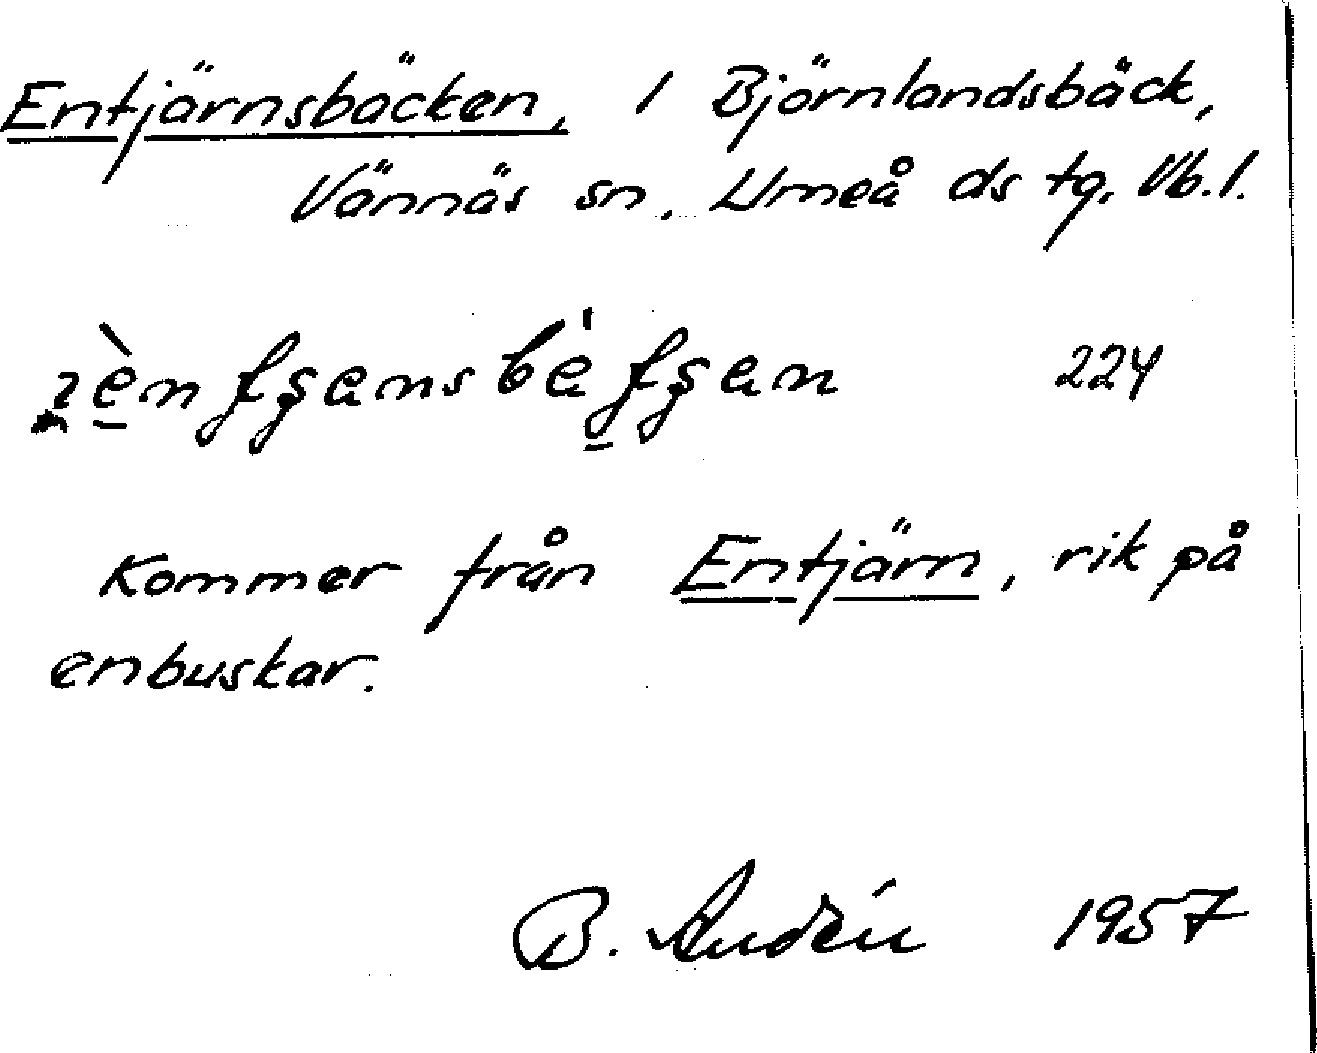 Entjärnsbäcken, / Björnlandsbäck,
Vännäs sn, Umeå ds tg, Vb. l.
224
Kommer från Entjärn, rik på
enbuskar.
B. Audén 1957